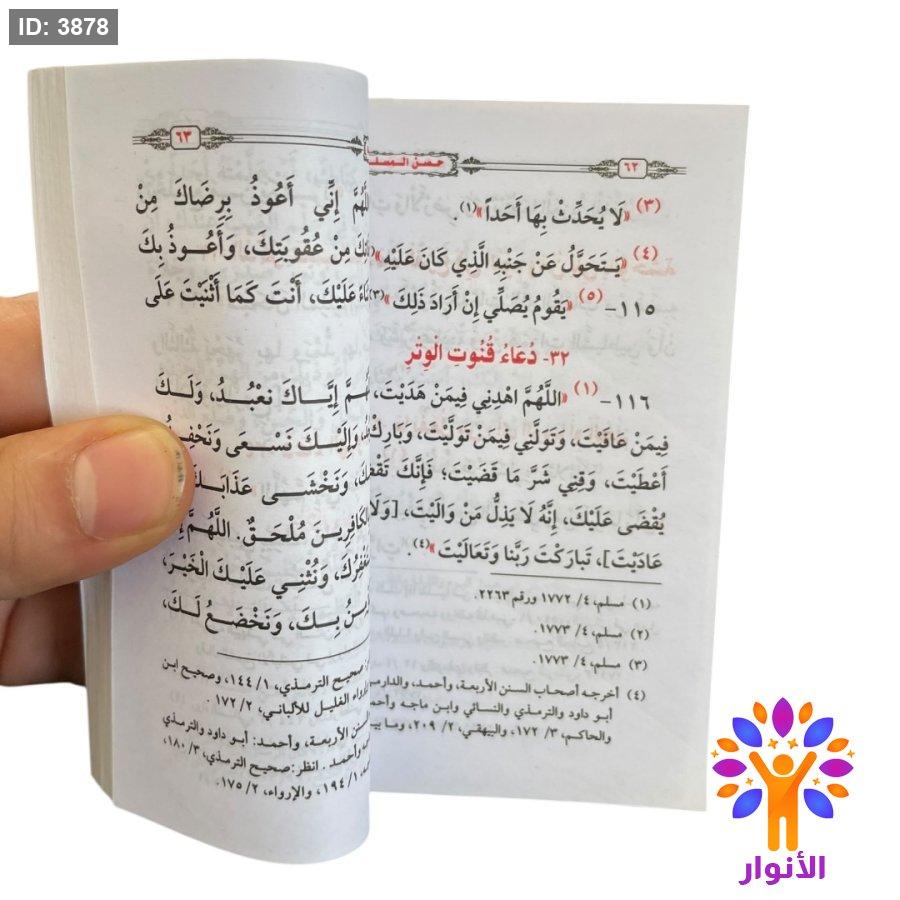 ID: 3878
٦٢
حصن المسلـ
(٣) «لَا يُحَدِّثْ بِهَا أَحَداً»(١).
(٤) «يَـتَحَوَّلُ عَنْ جَنْبِهِ الَّذِي كَانَ عَلَيْهِ»
١١٥-(٥) «يَقُومُ يُصَلِّي إِنْ أَرَادَ ذَلِكَ»(٣)
٣٢- دُعَاءُ قُنُوتِ الْوِتْرِ
١١٦-(١) «اللَّهُمَّ اهْدِنِي فِيمَنْ هَدَيْتَ،
فِيمَنْ عَافَيْتَ، وَتَوَلَّنِي فِيمَنْ تَوَلَّيْتَ، وَبَارِكْ
أَعْطَيْتَ، وَقِنِي شَرَّ مَا قَضَيْتَ؛ فَإِنَّكَ تَقْضِ
يُقْضَى عَلَيْكَ، إِنَّهُ لَا يَذِلُّ مَنْ وَالَيْتَ، [وَلَا
عَادَيْتَ]، تَبَارَكْتَ رَبَّنَا وَتَعَالَيْتَ»(٤).
(١) مسلم، ٤/ ١٧٧٢ ورقم ٢٢٦٣.
(٢) مسلم، ٤/ ١٧٧٣.
(٣) مسلم، ٤/ ١٧٧٣.
(٤) أخرجه أصحاب السنن الأربعة، وأحمد، والدارمي
أبو داود والترمذي والنسائي وابن ماجه وأحمد
والحاكم، ٣/ ١٧٢، والبيهقي، ٢/ ٢٠٩، وما بيـ
٦٣
اللَّهُمَّ إِنِّي أَعُوذُ بِرِضَاكَ مِنْ
مِنْ عُقُوبَتِكَ، وَأَعُـوذُ بِكَ
عَلَيْكَ، أَنْتَ كَمَا أَثْنَيْتَ عَلَى
إِيَّاكَ نَعْبُـدُ، وَلَـكَ
وَإِلَيْـكَ نَسْـعَى وَنَحْفِـدُ
وَنَخْشَـى عَذَابَـكَ
بِالْكَافِرِينَ مُلْحَقٌ. اللَّهُمَّ إِ
وَنُثْنِي عَلَيْكَ الْخَيْرَ،
بِـكَ، وَنَخْضَـعُ لَـكَ،
صحيح الترمذي، ١/ ١٤٤، وصحيح ابن
إرواء الغليل للألباني، ٢/ ١٧٢.
السنن الأربعة، وأحمد: أبو داود والترمذي
وأحمد. انظر: صحيح الترمذي، ٣/ ١٨٠،
١/ ١٩٤، والإرواء، ٢/ ١٧٥.
الأنوار